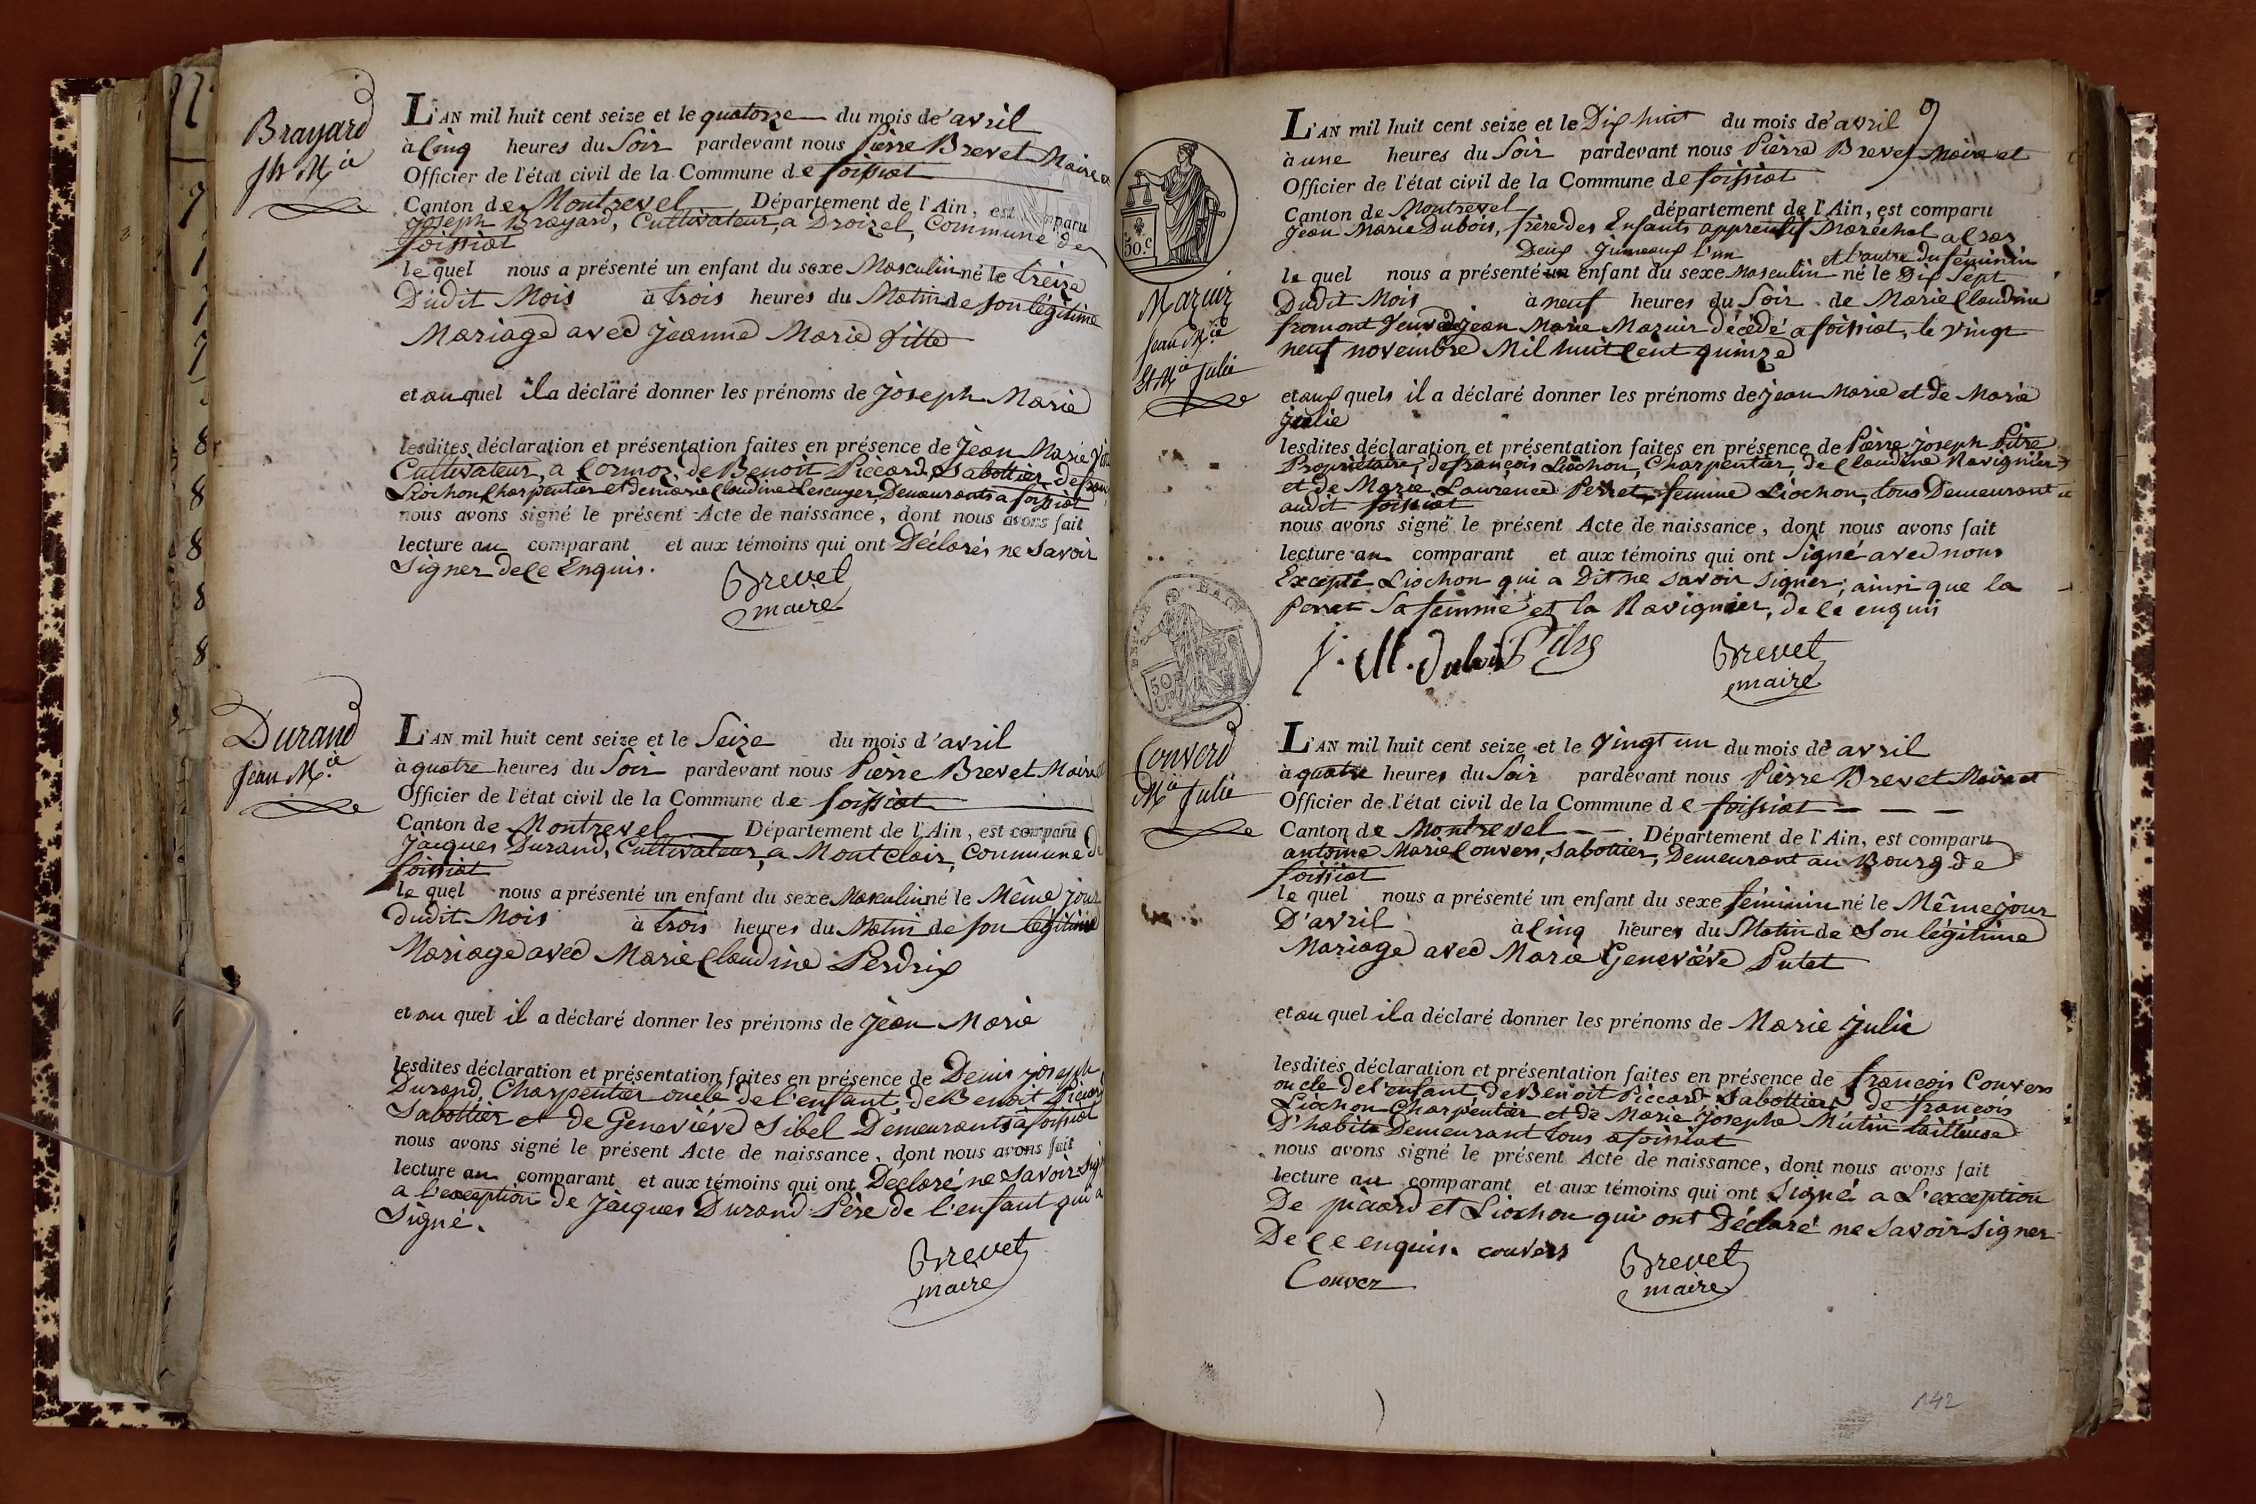 Brayard
Jh Mie
L'AN mil huit cent seize et le quatorze du mois de avril
à Cinq heures du Soir pardevant nous Pierre Brevet Maire et
Officier de l'état civil de la Commune de foissiat
Canton de Montrevel Département de l'Ain, est comparu
Joseph Brayard, Cultivateur, a Droizel, Commune de
foissiat
le quel nous a présenté un enfant du sexe Masculin né le treize
Dudit Mois à trois heures du Matin de son légitime
Mariage avec Jeanne Marie fitte
et au quel il a déclaré donner les prénoms de Joseph Marie
lesdites déclaration et présentation faites en présence de Jean Marie
Cultivateur, a Cormoz, de Benoit Piccard, Sabottier, de
Liochon Charpentier et de marie Claudine Lescuyer, Demeurants a foissiat
nous avons signé le présent Acte de naissance, dont nous avons fait
lecture au comparant et aux témoins qui ont Déclarés ne savoir
Signer de Ce Enquis.
Brevet
maire
Durand
Jean Mie
L'AN mil huit cent seize et le Seize du mois d'avril
à quatre heures du Soir pardevant nous Pierre Brevet Maire et
Officier de l'état civil de la Commune de foissiat
Canton de Montrevel Département de l'Ain, est comparu
Jacques Durand, Cultivateur, a Montclair, Commune de
foissiat
le quel nous a présenté un enfant du sexe Masculin né le Même jour
dudit Mois à trois heures du Matin de son légitime
Mariage avec Marie Claudine Perdrix
et au quel il a déclaré donner les prénoms de Jean Marie
lesdites déclaration et présentation faites en présence de Denis joseph
Durand, Charpentier oncle de l'enfant, de Benoit Piccard
Sabottier et de Geneviéve Sibel Demeurants a foissiat
nous avons signé le présent Acte de naissance, dont nous avons fait
lecture au comparant et aux témoins qui ont Déclaré ne savoir
a l'exception de Jacques Durand Père de l'enfant qui a
Signé.
Brevet
maire
9
50.c
Mazuir
Jean Mie
Et Mie Julie
L'AN mil huit cent seize et le Dix huit du mois de avril
à une heures du Soir pardevant nous Pierre Brevet Maire et
Officier de l'état civil de la Commune de foissiat
Canton de Montrevel département de l'Ain, est comparu
Jean Marie Dubois, frère des Enfants apprentif Maréchal a
Deux Jumeaux l'un et l'autre du féminin
le quel nous a présenté un enfant du sexe Masculin né le Dix Sept
Dudit Mois à neuf heures du Soir de Marie Claudine
fromont Veuve de jean Marie Mazuir décédé a foissiat, le vingt
neuf novembre Mil huit Cent quinze
et aux quels il a déclaré donner les prénoms de jean Marie et de Marie
Julie
lesdites déclaration et présentation faites en présence de Pierre joseph Pitre
Propriétaire, de françois Liochon, Charpentier, de Claudine Ravignier
et de Marie Laurence Perret, femme Liochon, tous Demeurant
audit foissiat
nous avons signé le présent Acte de naissance, dont nous avons fait
lecture au comparant et aux témoins qui ont Signé avec nous
Excepté Liochon qui a Dit ne savoir signer, ainsi que la
Perret Sa femme et la Ravignier, de ce enquis
J. M. Dubois Pitre
Brevet
maire
50
Convers
Mie Julie
L'AN mil huit cent seize et le Vingt un du mois de avril
à quatre heures du Soir pardevant nous Pierre Brevet Maire et
Officier de l'état civil de la Commune de foissiat
Canton de Montrevel Département de l'Ain, est comparu
antoine Marie Convers, Sabottier, Demeurant au Bourg de
foissiat
le quel nous a présenté un enfant du sexe féminin né le Même jour
D'avril à Cinq heures du Matin de Son légitime
Mariage avec Marie Geneviève Putet
et au quel il a déclaré donner les prénoms de Marie Julie
lesdites déclaration et présentation faites en présence de françois Convers
oncle de l'enfant, de Benoit Piccard Sabottier, de françois
Liochon Charpentier et de Marie Josephe Mutin tailleuse
D'habits Demeurant tous a foissiat
nous avons signé le présent Acte de naissance, dont nous avons fait
lecture au comparant et aux témoins qui ont Signé a L'exception
De picard et Liochon qui ont Déclaré ne savoir signer
De Ce enquis. convers
Convez
Brevet
maire
142